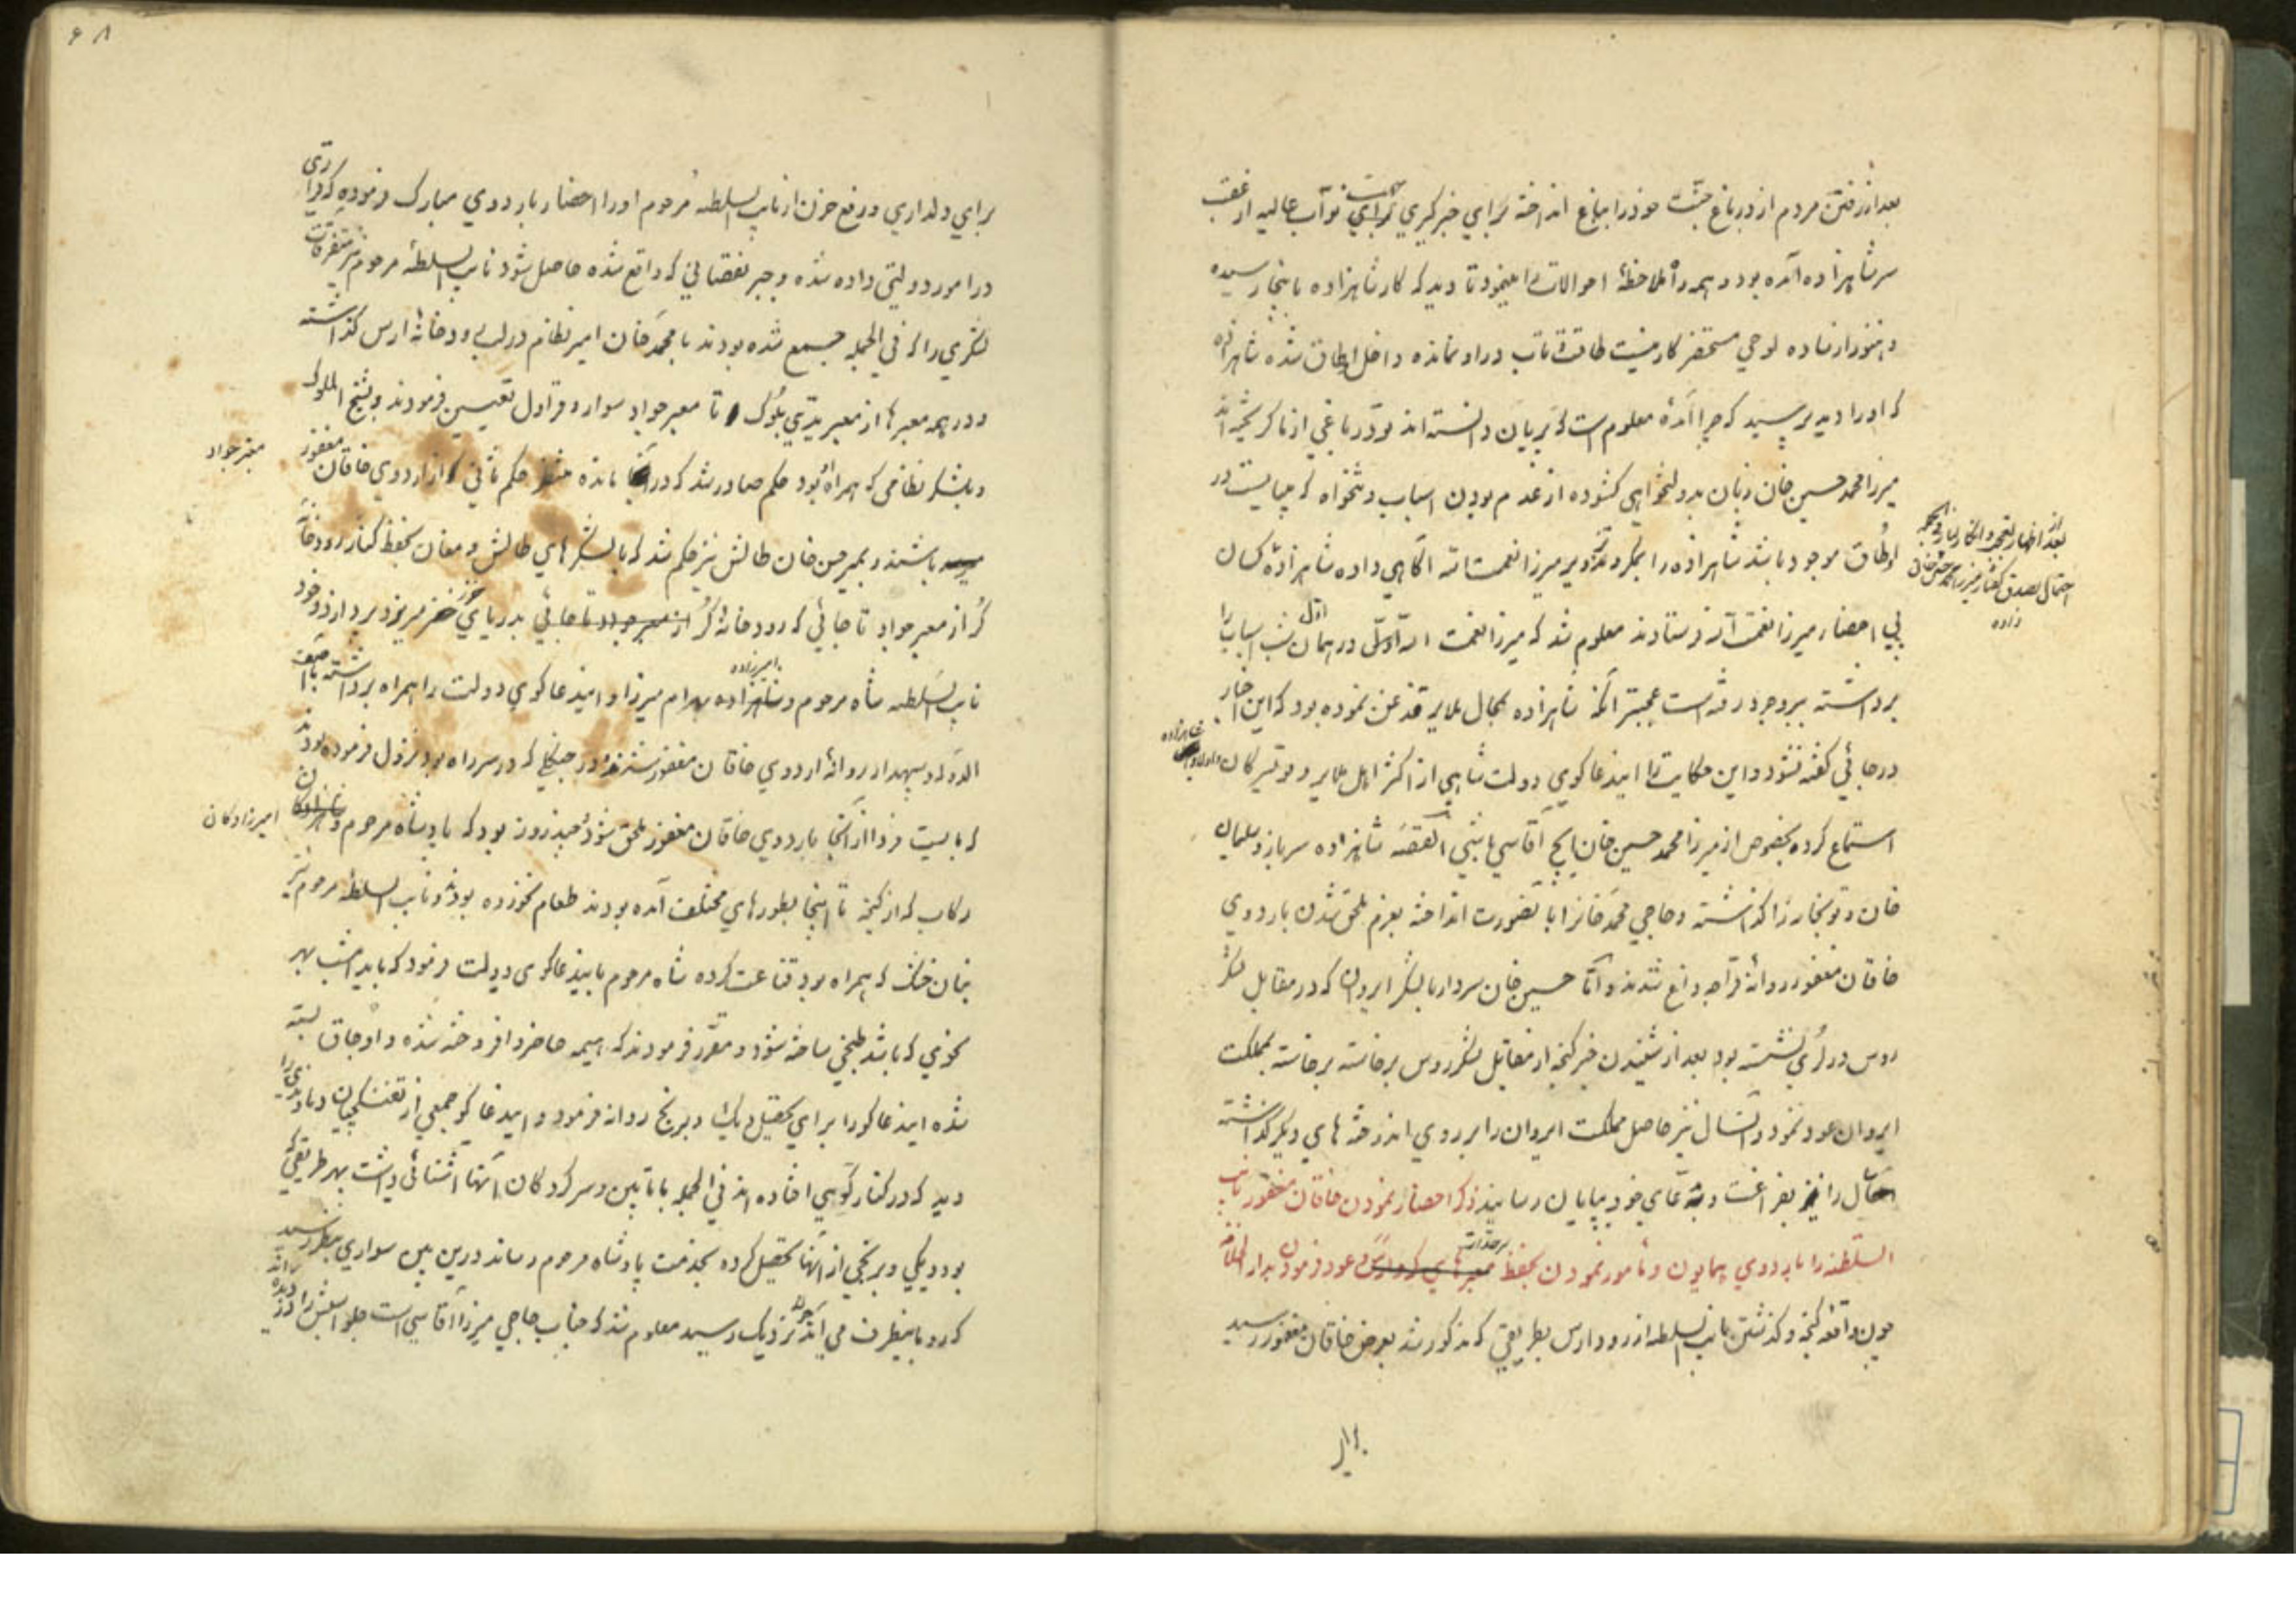 بعد از رفتن مردم از در باغ جسته خود را بباغ انداخته برای خبرگیری نواب عالیه از عقب
سر شاهزاده آمده بود و همه را ملاحظهٔ احوالات مینمود تا دید که کار شاهزاده باینجا رسیده
و هنوز از ساده لوحی مستحضر کار نیست طاقت و تاب در او نمانده داخل اطاق شده شاهزاده
که او را دید پرسید که چرا آمدهٔ معلوم است که
میرزا محمد حسین خان زبان بدولتخواهی کشوده از عدم بودن اسباب و تنخواه که میبایست در
بعد از اظهار تعجب و انکار
احتمال بصدق گفتار میرزا محمد حسین خان
داده
اوطاق موجود باشد شاهزاده را میرزا نعمت الله آگاهی داده شاهزاده کسان
پی احضار میرزا نعمت الله فرستادند معلوم شد که میرزا نعمت الله در همان اول شب اسباب را
برداشته ببروجرد رفته است عجبتر آنکه شاهزاده بمحال ملایر قدغن نموده بود که این اخبار
در جائی گفته نشود و این حکایت را این دعاگوی دولت شاهی از اکثر اهل ملایر و تویسرکان
شاهزاده
استماع کرده بخصوص از میرزا محمد حسین خان آقاسی باشی القصه شاهزاده سرباز و سلیمان
خان و توپخانه را گذاشته و حاجی محمد خان را باین صورت انداخته بعزم ملحق شدن باردوی
خاقان مغفور روانهٔ قراجه داغ شدند و اما حسین خان سردار با لشکر ایروان که در مقابل لشکر
روس در لری نشسته بود بعد از شنیدن خبر گنجه از مقابل لشکر روس برخاسته بمملکت
ایروان عود نمود و آنسال نیز حاصل مملکت ایروان را بر روی اندوخته های دیگر گذاشته
سال را بفراغت و مدعای خود بپایان رسانید ذکر احضار نمودن خاقان مغفور نایب
السلطنه را باردوی همایون و مأمور نمودن بحفظ سرحدات و عود فرمودن بدار الخلافه
چون واقعه گنجه و گذشتن نایب السلطنه از رود ارس بطریقی که مذکور شد بعرض خاقان مغفور رسید
برای
۶۸
برای دلداری و رفع حزن از نایب السلطنه مرحوم او را احضار باردوی مبارک فرموده که قراری
در امور دولتی داده شده و جبر نقصانی که واقع شده حاصل شود نایب السلطنه مرحوم نیز متفرقات
لشکری را که فی الجمله جمع شده بودند با محمد خان امیر نظام در لب رودخانهٔ ارس گذاشته
و در همه معبرها از معبر یدی بلوک تا معبر جواد سوار و قراول تعیین فرمودند و بشیخ الملوک
معبر جواد
و بلشکر نظامی که همراه او بود حکم صادر شد که در آنجا مانده منتظر حکم ثانی از اردوی خاقان مغفور
باشند و بمیر حسن خان طالش نیز حکم شد که با لشکرهای طالش و مغان بحفظ کنار رودخانه
کر از معبر جواد تا جائی که رودخانهٔ کر بدریای خزر میریزد بپردازد و خود
نایب السلطنه شاه مرحوم و امیرزاده بهرام میرزا و این دعاگوی دولت را همراه برداشته با آصف
الدوله و سپهدار روانهٔ اردوی خاقان مغفور شدند در جنگلی که در سر راه بود نزول فرموده بودند
که بایست فردا از آنجا باردوی خاقان مغفور ملحق شود چند روز بود که پادشاه مرحوم و
امیرزادگان
رکاب که از گنجه تا اینجا بطورهای مختلف آمده بودند طعام نخورده بودند و نایب السلطنه مرحوم نیز
بنان خشک که همراه بود قناعت کرده شاه مرحوم باین دعاگوی دولت فرمود که باید امشب بهر
نحوی که باشد طبخی ساخته شود و مقرر فرمودند که هیمه حاضر و افروخته شده و اوجاق بسته
شده این دعاگو را برای تحصیل دیک و برنج روانه فرمود و این دعاگو جمعی از تفنگچیان
دید که در کنار کوهی افتاده اند فی الجمله با تابین و سرکردگان آنها آشنائی داشت بهر طریقی که
بود دیکی و برنجی از آنها تحصیل کرده بخدمت پادشاه مرحوم رساند در این بین سواری بنظر رسید
که رو باینطرف می آید چون نزدیک رسید معلوم شد که جناب حاجی میرزا آقاسی است جلو اسبش را